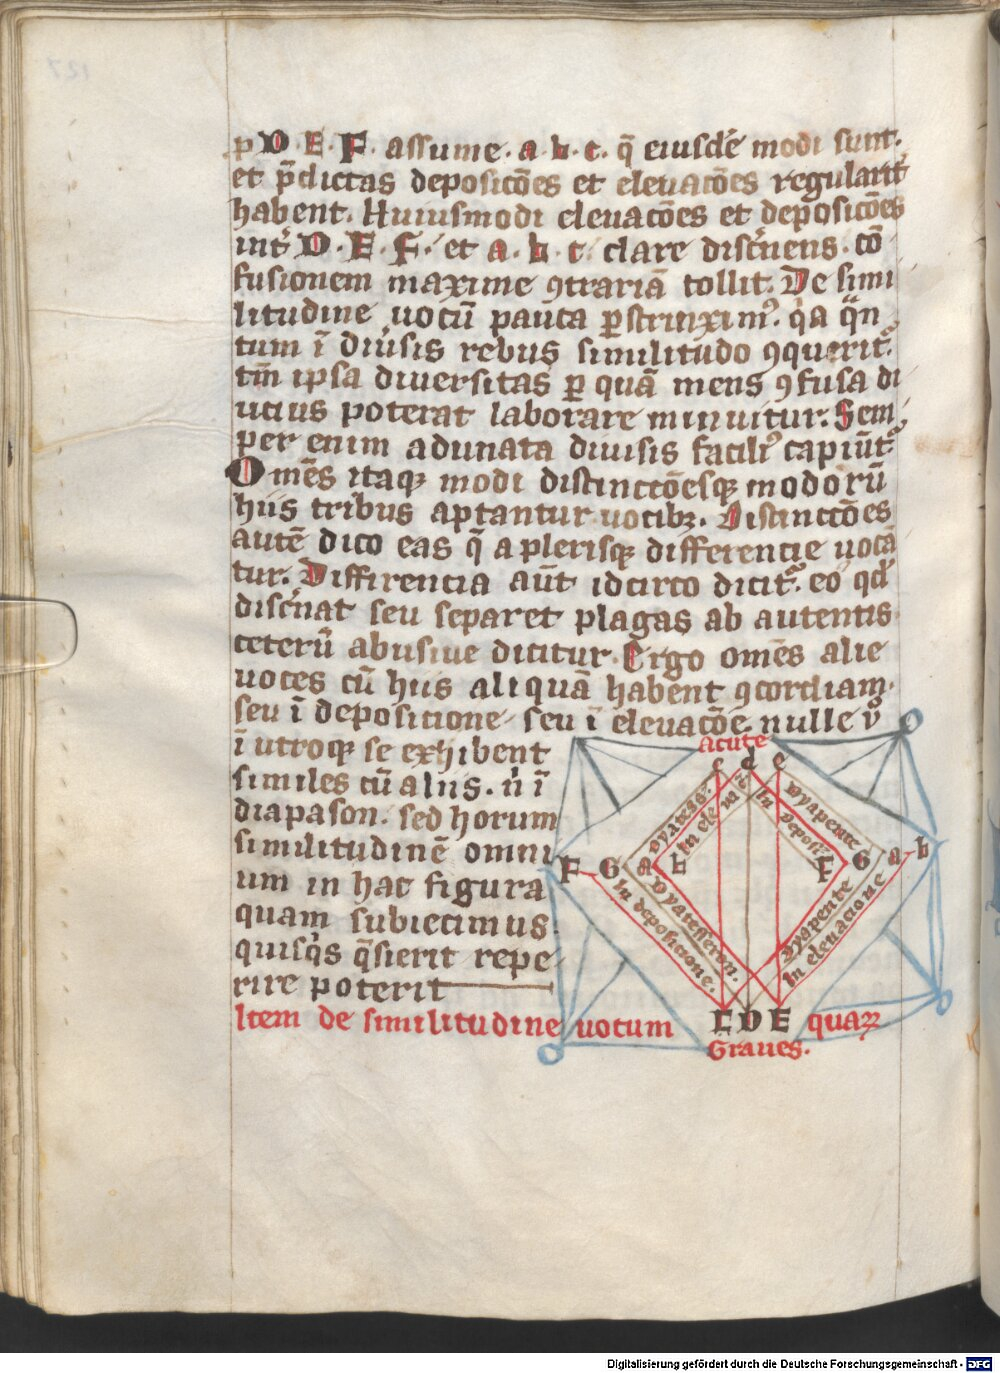 p D · E · F · assume · a · b · c · q̄ eiusdē modi sunt ·
et p̄dictas deposicōes et eleuacōes regularit᷑
habent. Huiusmodi eleuacōes et deposicōes
int᷑ D · E · F · et a · b · c · clare disc᷑nens · cō
fusionem maxime ꝯtrariā tollit. De simi
litudine uocū pauca ꝑstrinxim᷒. qͥa qͣn
tum ī diūsis rebus similitudo ꝯquerit᷑.
tm̄ ipsa diuersitas ꝑ quā mens ꝯfusa di
ucius poterat laborare minuitur. Sem
per enim adunata diuisis facili᷒ capiūt᷑
Omēs itaqꝫ modi distinctōesqꝫ modorū
hiis tribus aptantur uocibꝫ. Distinctōes
autē dico eas q̄ a plerisqꝫ differencie uocā
tur. Differencia aūt idcirco dicit᷑ eo qd̄
disc᷑nat seu separet plagas ab autentis
ceterū abusiue dicitur. Ergo omēs alie
uoces cū hiis aliquā habent ꝯcordiam.
seu ī deposicione seu ī eleuacōe nulle vͦ
ī utroqꝫ se exhibent
similes cū aliis. nͥ ī
diapason. sed horum
similitudinē omni
um in hac figura
quam subiecimus
quisqͥs q̄sierit repe
rire poterit
Item de similitudine uocum quaꝝ
acute
c d e
dyatess᷑.
in eleuat᷑
Dyapente
in deposit᷑
F G a b F G a b
Dyatesseron.
In deposicione.
Dyapente
In eleuacione
C D E
Graues.
Digitalisierung gefördert durch die Deutsche Forschungsgemeinschaft - DFG